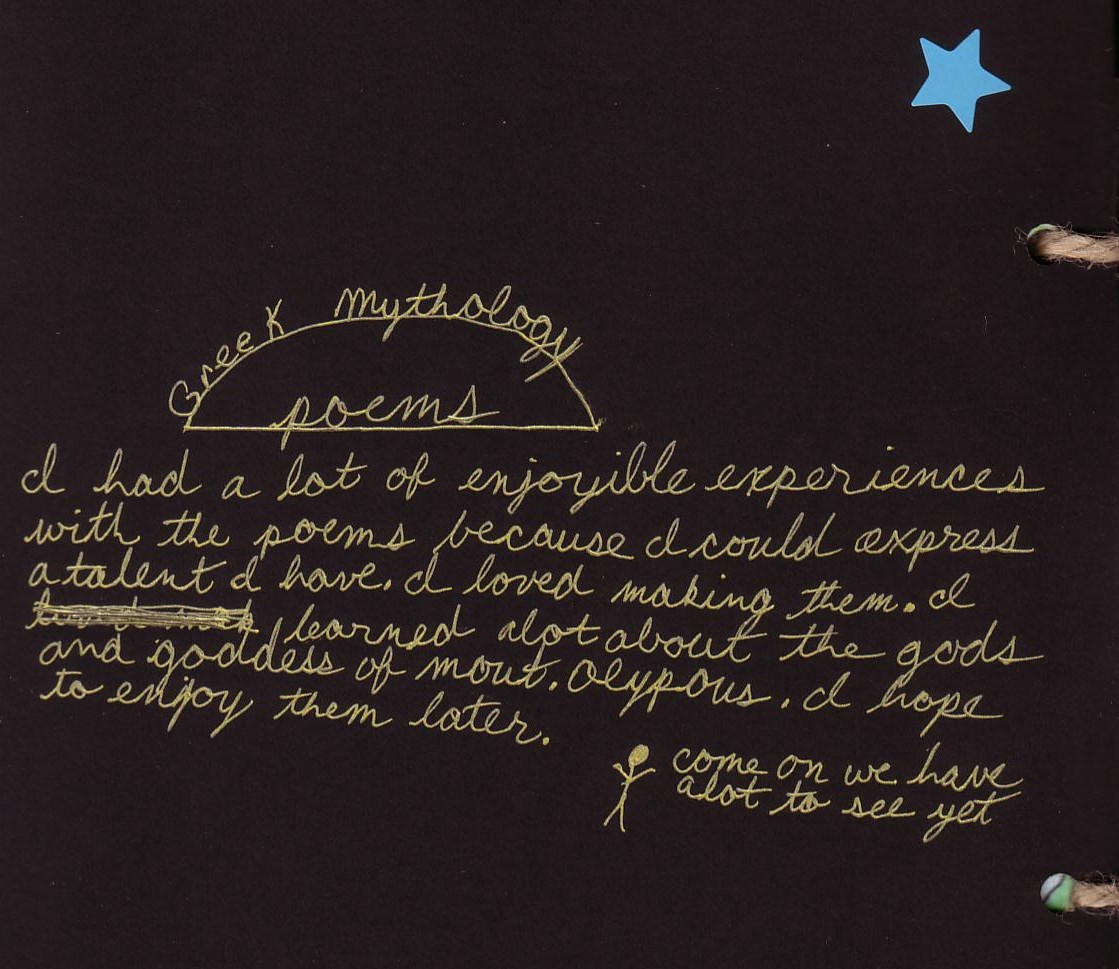 Greek Mythology
poems
I had a lot of enjoyible experiences
with the poems because I could express
a talent I have. I loved making them. I
learned alot about the gods
and goddess of mout. Olypous. I hope
to enjoy them later.
come on we have
alot to see yet